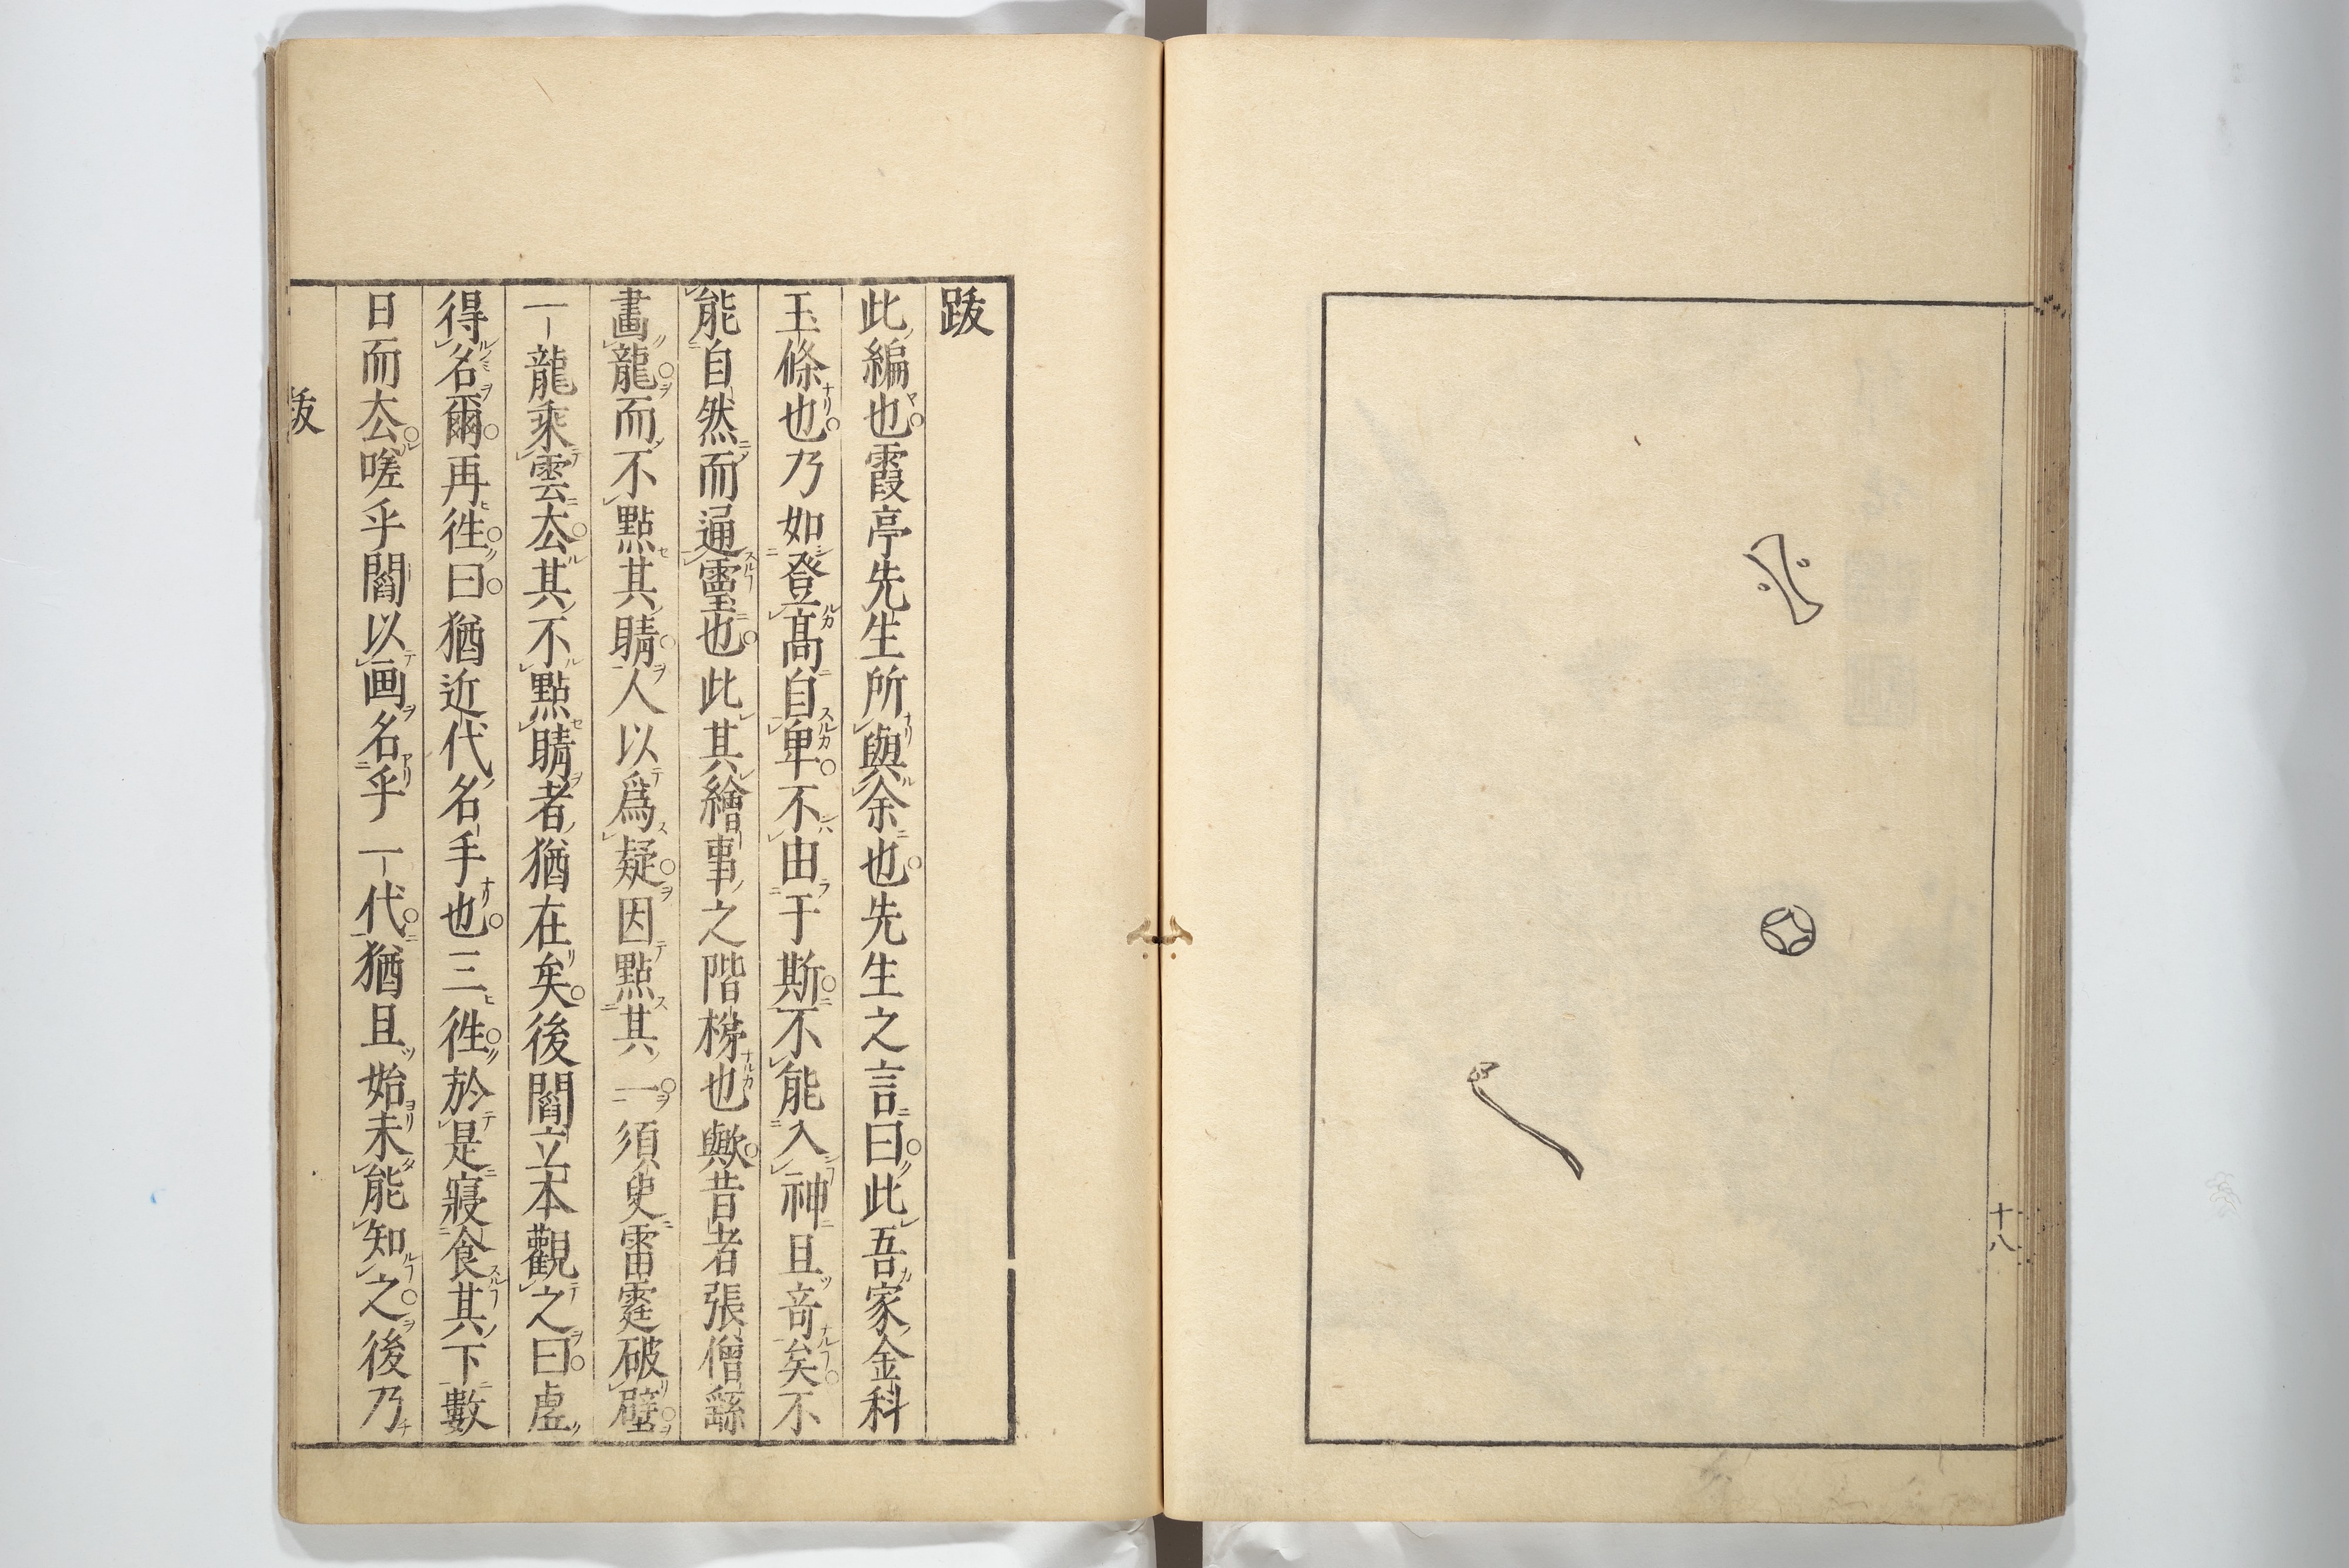 十八
跋
此編也霞亭先生所與余也先生之言曰此吾家金科
玉條也乃如登髙自卑不由于斯不能入神且竒矣不
能自然而通靈也此其繪事之階梯也歟昔者張僧繇
畫龍而不點其睛人以爲疑因點其一須臾雷霆破壁
一龍乘雲厺其不點睛者猶在矣後閻立本觀之曰虛
得名爾再徃曰猶近代名手也三徃於是寢食其下數
日而厺嗟乎閻以画名乎一代猶且始未能知之後乃
跋